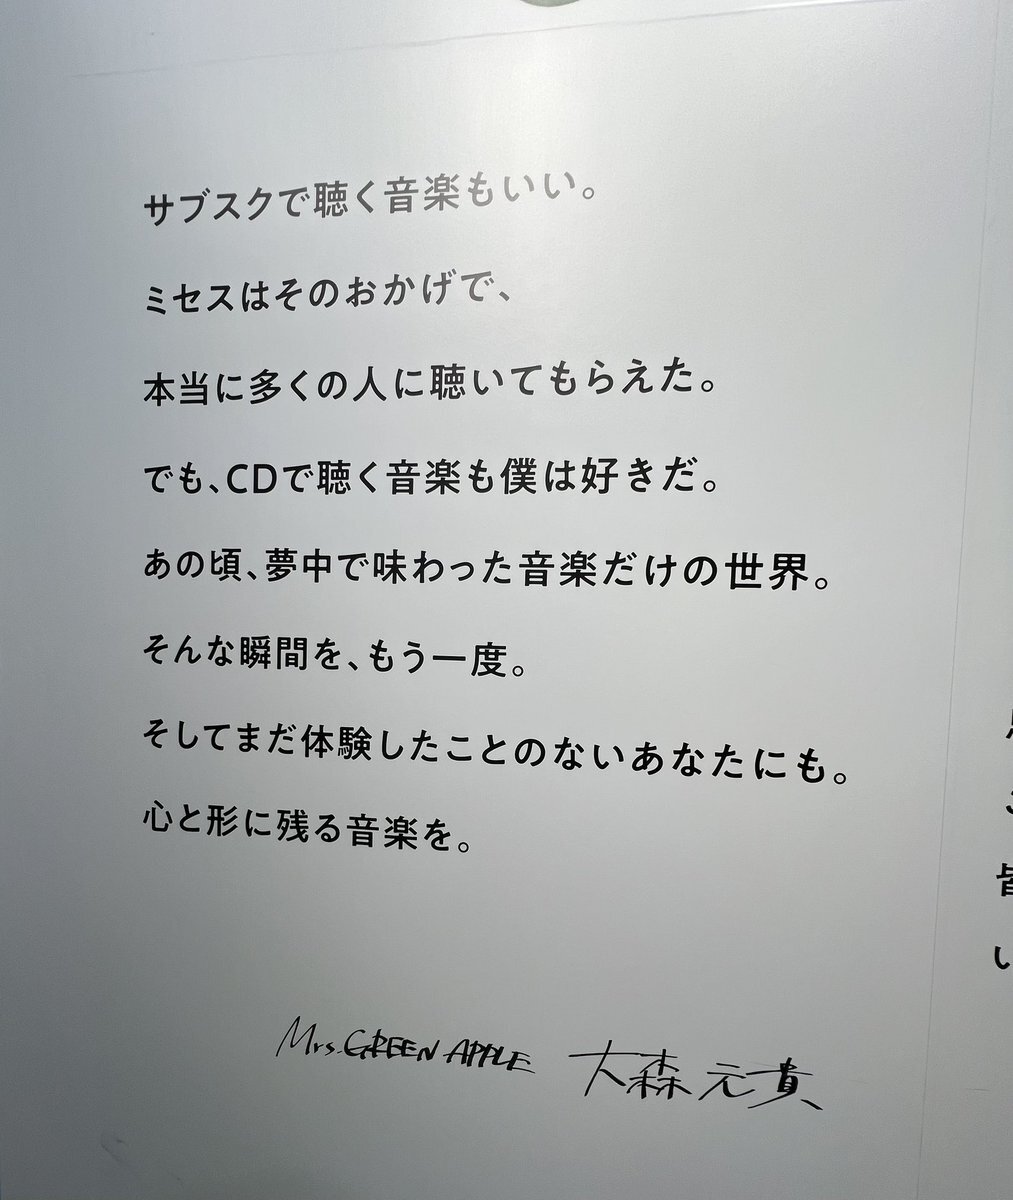 サブスクで聴く音楽もいい。
ミセスはそのおかげで、
本当に多くの人に聴いてもらえた。
でも、CDで聴く音楽も僕は好きだ。
あの頃、夢中で味わった音楽だけの世界。
そんな瞬間を、もう一度。
そしてまだ体験したことのないあなたにも。
心と形に残る音楽を。
Mrs. GREEN APPLE 大森元貴
皆
い